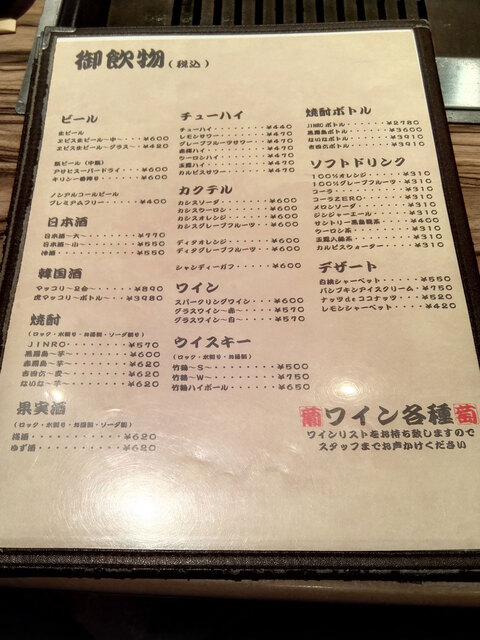 御飲物(税込)
ビール
生ビール
ヱビス生ビール～中～・・・¥600
ヱビス生ビール～グラス～・・¥420
瓶ビール(中瓶)
アサヒスーパードライ・・・¥600
キリン一番搾り・・・・・・¥600
ノンアルコールビール
プレミアムフリー・・・・・¥400
日本酒
日本酒～大～・・・・・・・¥770
日本酒～小～・・・・・・・¥550
冷酒・・・・・・・・・・・¥550
韓国酒
マッコリ～2合～・・・・・¥890
虎マッコリ～ボトル～・・・¥3980
焼酎
(ロック・水割り・お湯割・ソーダ割り)
JINRO・・・・・・・・・¥570
黒霧島～芋～・・・・・・・¥600
赤霧島～芋～・・・・・・・¥620
吉四六～麦～・・・・・・・¥620
ないな～芋～・・・・・・・¥620
果実酒
(ロック・水割り・お湯割・ソーダ割)
梅酒・・・・・・・・・・・¥620
ゆず酒・・・・・・・・・・¥620
チューハイ
チューハイ・・・・・・・・¥440
レモンサワー・・・・・・・¥470
グレープフルーツサワー・・¥470
緑茶ハイ・・・・・・・・・¥470
ウーロンハイ・・・・・・・¥470
玉露ハイ・・・・・・・・・¥470
カルピスサワー・・・・・・¥470
カクテル
カシスソーダ・・・・・・・¥600
カシスウーロン・・・・・・¥600
カシスオレンジ・・・・・・¥600
カシスグレープフルーツ・・¥600
ディタオレンジ・・・・・・¥600
ディタグレープフルーツ・・¥600
シャンディーガフ・・・・・¥600
ワイン
スパークリングワイン・・・¥600
グラスワイン～赤～・・・・¥570
グラスワイン～白～・・・・¥570
ウイスキー
(ロック・水割り・お湯割・ソーダ割)
竹鶴～S～・・・・・・・・¥500
竹鶴～W～・・・・・・・・¥750
竹鶴ハイボール・・・・・・¥650
焼酎ボトル
JINROボトル・・・・・・¥2780
黒霧島ボトル・・・・・・・¥3600
ないなボトル・・・・・・・¥3910
吉四六ボトル・・・・・・・¥3910
ソフトドリンク
100%オレンジ・・・・・・¥310
100%グレープフルーツ・・¥310
コーラ・・・・・・・・・・¥310
コーラZERO・・・・・・・¥310
メロンソーダ・・・・・・・¥310
ジンジャーエール・・・・・¥310
サントリー黒烏龍茶・・・・¥400
ウーロン茶・・・・・・・・¥310
玉露入緑茶・・・・・・・・¥310
カルピスウォーター・・・・¥310
デザート
白桃シャーベット・・・・・¥550
パンプキンアイスクリーム・¥750
ナッツdeココナッツ・・・¥520
レモンシャーベット・・・・¥420
葡ワイン各種萄
ワインリストをお持ち致しますので
スタッフまでお声かけください